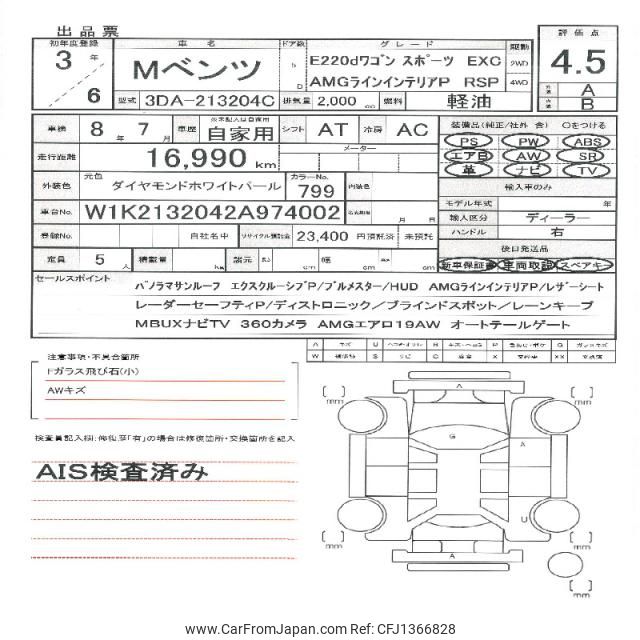 出品票
初年度登録 車名 ドア数 グレード 駆動 評価点
3年 Mベンツ 5 E220dワゴン スポーツ EXC 2WD 4.5
6 D AMGラインインテリアP RSP 4WD
型式 3DA-213204C 排気量 2,000 cc 燃料 軽油 A
B
車検 8年7月 車歴 ※未記入は自家用 自家用 シフト AT 冷房 AC 装備品(純正/社外 含) ○をつける
PS PW ABS
走行距離 16,990 km メーター エアB AW SR
革 ナビ TV
外装色 元色 ダイヤモンドホワイトパール カラーNo. 799 内装色 輸入車のみ
モデル年式 年
車台No. W1K2132042A974002 月 日 輸入区分 ディーラー
ハンドル 右
登録No. 自社名中 リサイクル預託金 23,400 円預託済 未預託 後日発送品
定員 5人 積載量 kg 諸元 長さ cm 幅 cm 高さ cm 新車保証書 車両取説 スペアキー
セールスポイント
パノラマサンルーフ エクスクルーシブP/ブルメスター/HUD AMGラインインテリアP/レザーシート
レーダーセーフティP/ディストロニック/ブラインドスポット/レーンキープ
MBUXナビTV 360カメラ AMGエアロ19AW オートテールゲート
注意事項・不具合箇所
Fガラス飛び石(小)
AWキズ
AIS検査済み
[ ] mm
[ ] mm
A
G
A
U
A
[ ] mm
[ ] mm
[ ] mm
© www.CarFromJapan.com Ref: CFJ1366828